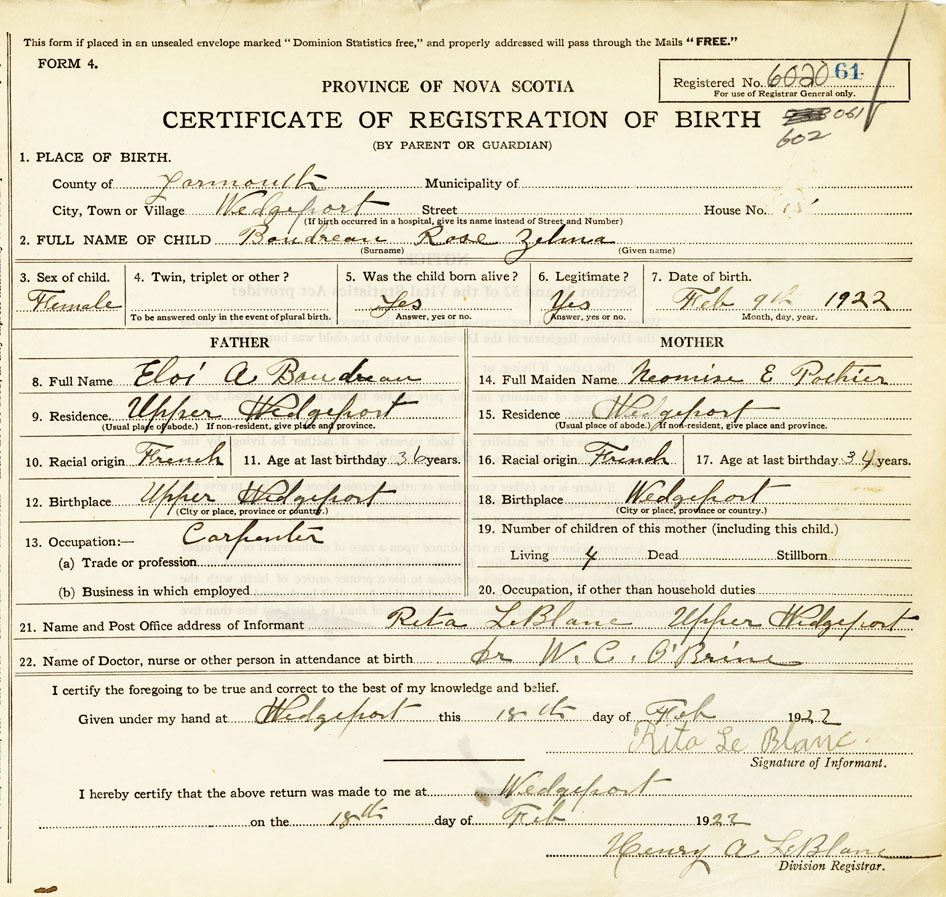 This form if placed in an unsealed envelope marked "Dominion Statistics free," and properly addressed will pass through the Mails "FREE."
FORM 4.
Registered No. 6020 61
For use of Registrar General only.
PROVINCE OF NOVA SCOTIA
CERTIFICATE OF REGISTRATION OF BIRTH 061
602
(BY PARENT OR GUARDIAN)
1. PLACE OF BIRTH.
County of Yarmouth Municipality of
City, Town or Village Wedgeport Street House No.
(If birth occurred in a hospital, give its name instead of Street and Number)
2. FULL NAME OF CHILD Boudreau Rose Zelma
(Surname) (Given name)
3. Sex of child. 4. Twin, triplet or other? 5. Was the child born alive? 6. Legitimate? 7. Date of birth.
Female Yes Yes Feb 9th 1922
To be answered only in the event of plural birth. Answer, yes or no. Answer, yes or no. Month, day, year.
FATHER
8. Full Name Eloi A Boudreau
9. Residence. Upper Wedgeport
(Usual place of abode.) If non-resident, give place and province.
10. Racial origin French 11. Age at last birthday 36 years.
12. Birthplace Upper Wedgeport
(City or place, province or country.)
13. Occupation:— Carpenter
(a) Trade or profession
(b) Business in which employed
MOTHER
14. Full Maiden Name Neomise E Pothier
15. Residence Wedgeport
(Usual place of abode.) If non-resident, give place and province.
16. Racial origin French 17. Age at last birthday 34 years.
18. Birthplace Wedgeport
(City or place, province or country.)
19. Number of children of this mother (including this child.)
Living 4 Dead Stillborn
20. Occupation, if other than household duties
21. Name and Post Office address of Informant Rita LeBlanc Upper Wedgeport
22. Name of Doctor, nurse or other person in attendance at birth Dr W. C. O'Brine
I certify the foregoing to be true and correct to the best of my knowledge and belief.
Given under my hand at Wedgeport this 18th day of Feb 1922
Rita Le Blanc.
Signature of Informant.
I hereby certify that the above return was made to me at Wedgeport
on the 18th day of Feb 1922
Henry A LeBlanc
Division Registrar.